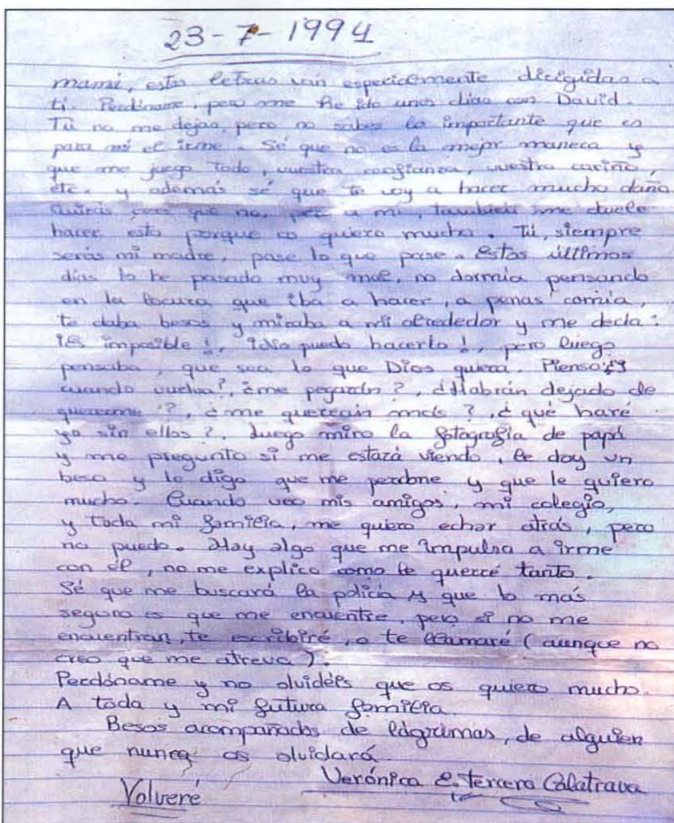 23-7-1994
mami, estas letras van especialmente dirigidas a
ti. Perdóname, pero me he ido unos días con David.
Tú no me dejas, pero no sabes lo importante que es
para mí el irme. Sé que no es la mejor manera y
que me juego todo, vuestra confianza, vuestro cariño,
etc. y además sé que te voy a hacer mucho daño
que no, pero a mí, también me duele
hacer esto porque os quiero mucho. Tú, siempre
serás mi madre, pase lo que pase. Estos últimos
días lo he pasado muy mal, no dormía pensando
en la locura que iba a hacer, a penas comía,
te daba besos y miraba a mi alrededor y me decía:
¡Es imposible!, ¡No puedo hacerlo!, pero luego
pensaba, que sea lo que Dios quiera. Pienso ¿y
cuando vuelva?, ¿me pegarán?, ¿Habrán dejado de
quererme?, ¿me querrán más?, ¿qué haré
yo sin ellos?. Luego miro la fotografía de papá
y me pregunto si me estará viendo, le doy un
beso y le digo que me perdone y que le quiero
mucho. Cuando veo mis amigos, mi colegio,
y toda mi familia, me quiero echar atrás, pero
no puedo. Hay algo que me impulsa a irme
con él, no me explico como le querré tanto.
Sé que me buscará la policía y que lo más
seguro es que me encuentre, pero si no me
encuentran, te escribiré, o te llamaré (aunque no
creo que me atreva).
Perdóname y no olvidéis que os quiero mucho.
A toda y mi futura familia
Besos acompañados de lágrimas, de alguien
que nunca os olvidará
Verónica E. Tercero Calatrava
Volveré